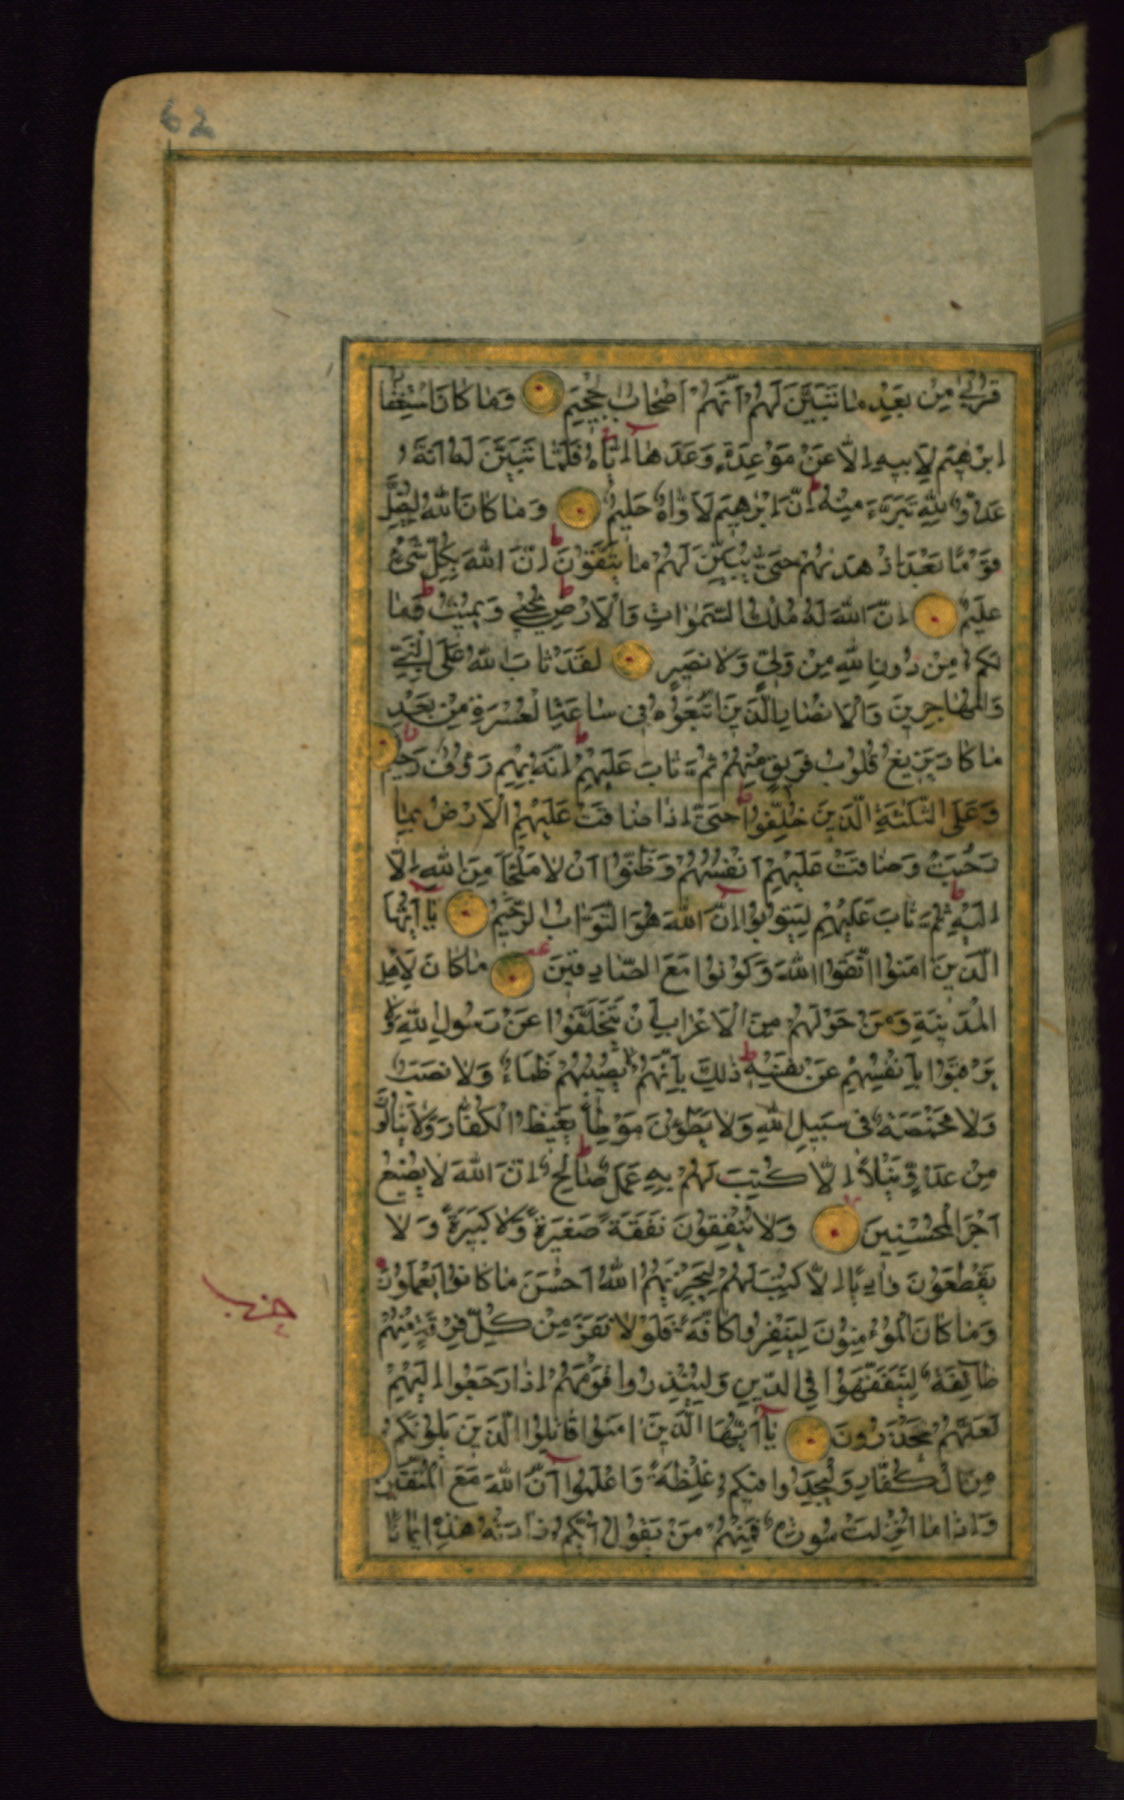 62
قُرْبٰى مِنْ بَعْدِ مَا تَبَيَّنَ لَهُمْ اَنَّهُمْ اَصْحَابُ الْجَحِيمِ وَمَا كَانَ اسْتِغْفَا
اِبْرٰهِيمَ لِاَبِيهِ اِلَّا عَنْ مَوْعِدَةٍ وَعَدَهَا اِيَّاهُ فَلَمَّا تَبَيَّنَ لَهُ اَنَّهُ
عَدُوٌّ لِلّٰهِ تَبَرَّءَ مِنْهُ اِنَّ اِبْرٰهِيمَ لَاَوَّاهٌ حَلِيمٌ وَمَا كَانَ اللّٰهُ لِيُضِلَّ
قَوْمًا بَعْدَ اِذْ هَدٰيهُمْ حَتّٰى يُبَيِّنَ لَهُمْ مَا يَتَّقُونَ اِنَّ اللّٰهَ بِكُلِّ شَيْءٍ
عَلِيمٌ اِنَّ اللّٰهَ لَهُ مُلْكُ السَّمٰوَاتِ وَالْاَرْضِ يُحْيِي وَيُمِيتُ وَمَا
لَكُمْ مِنْ دُونِ اللّٰهِ مِنْ وَلِيٍّ وَلَا نَصِيرٍ لَقَدْ تَابَ اللّٰهُ عَلَى النَّبِيِّ
وَالْمُهَاجِرِينَ وَالْاَنْصَارِ الَّذِينَ اتَّبَعُوهُ فِي سَاعَةِ الْعُسْرَةِ مِنْ بَعْدِ
مَا كَادَ يَزِيغُ قُلُوبُ فَرِيقٍ مِنْهُمْ ثُمَّ تَابَ عَلَيْهِمْ اِنَّهُ بِهِمْ رَءُوفٌ رَحِيمٌ
وَعَلَى الثَّلٰثَةِ الَّذِينَ خُلِّفُوا حَتّٰى اِذَا ضَاقَتْ عَلَيْهِمُ الْاَرْضُ بِمَا
رَحُبَتْ وَضَاقَتْ عَلَيْهِمْ اَنْفُسُهُمْ وَظَنُّوا اَنْ لَا مَلْجَاَ مِنَ اللّٰهِ اِلَّا
اِلَيْهِ ثُمَّ تَابَ عَلَيْهِمْ لِيَتُوبُوا اِنَّ اللّٰهَ هُوَ التَّوَّابُ الرَّحِيمُ يَا اَيُّهَا
الَّذِينَ اٰمَنُوا اتَّقُوا اللّٰهَ وَكُونُوا مَعَ الصَّادِقِينَ مَا كَانَ لِاَهْلِ
الْمَدِينَةِ وَمَنْ حَوْلَهُمْ مِنَ الْاَعْرَابِ اَنْ يَتَخَلَّفُوا عَنْ رَسُولِ اللّٰهِ وَلَا
يَرْغَبُوا بِاَنْفُسِهِمْ عَنْ نَفْسِهِ ذٰلِكَ بِاَنَّهُمْ لَا يُصِيبُهُمْ ظَمَاءٌ وَلَا نَصَبٌ
وَلَا مَخْمَصَةٌ فِي سَبِيلِ اللّٰهِ وَلَا يَطَؤُنَ مَوْطِأً يَغِيظُ الْكُفَّارَ وَلَا يَنَالُونَ
مِنْ عَدُوٍّ نَيْلًا اِلَّا كُتِبَ لَهُمْ بِهِ عَمَلٌ صَالِحٌ اِنَّ اللّٰهَ لَا يُضِيعُ
اَجْرَ الْمُحْسِنِينَ وَلَا يُنْفِقُونَ نَفَقَةً صَغِيرَةً وَلَا كَبِيرَةً وَلَا
يَقْطَعُونَ وَادِيًا اِلَّا كُتِبَ لَهُمْ لِيَجْزِيَهُمُ اللّٰهُ اَحْسَنَ مَا كَانُوا يَعْمَلُونَ
وَمَا كَانَ الْمُؤْمِنُونَ لِيَنْفِرُوا كَافَّةً فَلَوْلَا نَفَرَ مِنْ كُلِّ فِرْقَةٍ مِنْهُمْ
طَائِفَةٌ لِيَتَفَقَّهُوا فِي الدِّينِ وَلِيُنْذِرُوا قَوْمَهُمْ اِذَا رَجَعُوا اِلَيْهِمْ
لَعَلَّهُمْ يَحْذَرُونَ يَا اَيُّهَا الَّذِينَ اٰمَنُوا قَاتِلُوا الَّذِينَ يَلُونَكُمْ
مِنَ الْكُفَّارِ وَلْيَجِدُوا فِيكُمْ غِلْظَةً وَاعْلَمُوا اَنَّ اللّٰهَ مَعَ الْمُتَّقِينَ
وَاِذَا مَا اُنْزِلَتْ سُورَةٌ فَمِنْهُمْ مَنْ يَقُولُ اَيُّكُمْ زَادَتْهُ هٰذِهِ اِيمَانًا
حزب